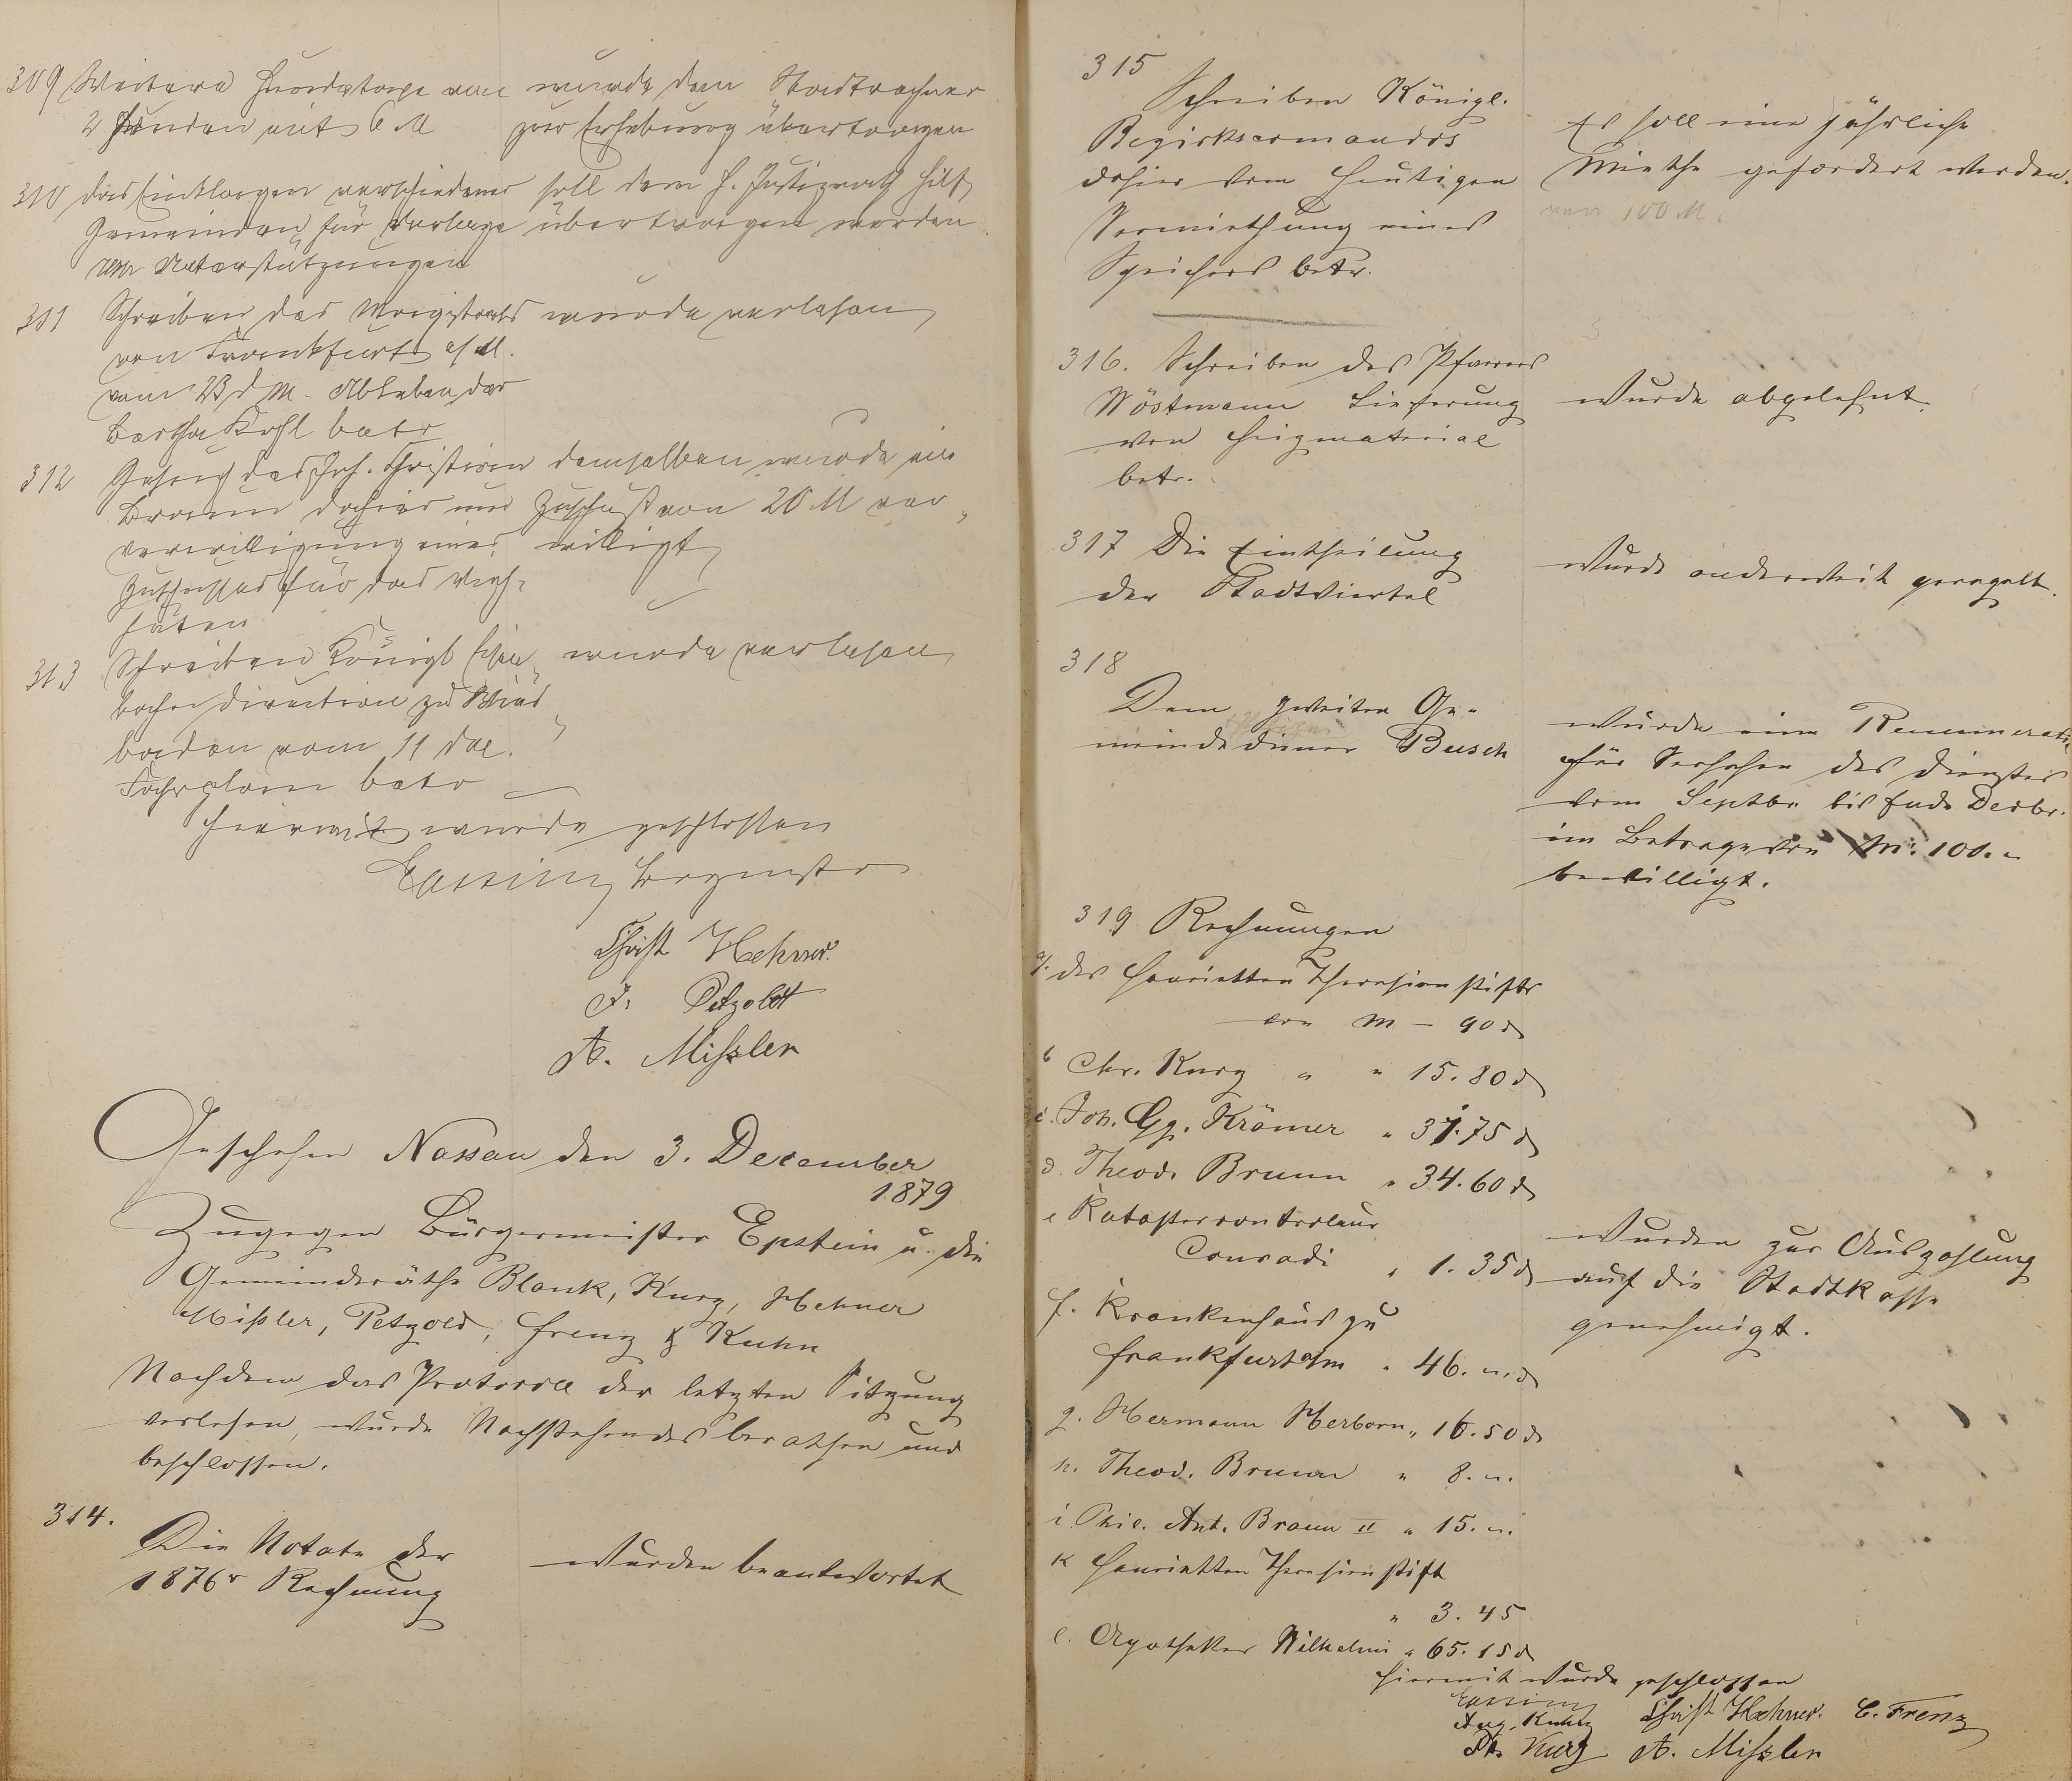 309 Weitere Hundstaxe von wurde dem Stadtrechner
2 Hunden mit 6 M zur Erhebung übertragen
310 das Einklagen verschiedener soll dem H. Justizrath Hilf
Gemeinden für Verlage übertragen werden.
Unterstützungen
311 Schreiben des Magistrats wurde verlesen
von Frankfurt a/M.
vom 23 d M. Ableben der
Bertha Kohl betr
312 Gesuch des Joh. Christian demselben wurde ein
Braun dahier um Zuschuß von 20 M ver-
verwilligung eines willigt
Zuschusses für das Vieh-
hüten
313 Schreiben Königl Eisen- wurde verlesen
bahn direction zu Wies-
baden vom 11 d M.
Fahrplan betr
Hiermit wurde geschlossen
Bürgmstr
Christ Hehner.
F. Petzoldt
A. Mißler
Geschehen Nassau den 3. December
1879
Zugegen Bürgermeister Epstein u. die
Gemeinderäthe Blank, Kurz, Hehner
Mißler, Petzold, Frenz & Kuhn
Nachdem das Protocoll der letzten Sitzung
verlesen, wurde Nachstehendes berathen und
beschlossen.
314.
Die Notate der wurden beantwortet
1876r Rechnung
315
Schreiben Königl.
Bezirkscomandos
dahier vom Heutigen
Vermiethung eines
Speichers betr.
Es soll eine jährliche
Miethe gefordert werden.
von 100 M.
316. Schreiben des Pfarrers
Wöstmann Lieferung
von Heizmaterial
betr.
Wurde abgelehnt.
317 Die Eintheilung
der Stadtviertel
Wurde anderweit geregelt.
318
Dem zweiten Ge-
meindediener Busch
wurde eine Remuneratio
für Versehen des Dienstes
vom Septbr. bis Ende Decbr.
im Betrage von M. 100.-
bewilligt.
319 Rechnungen
a. des Henrietten Theresien stifts
von M - 90 d
b Chr. Kurz " " 15.80 d
c. Joh. Gg. Krämer " 31.75 d
d. Theod. Brunn " 34.60 d
e Katastercontroleur
Conradi " 1.35 d
f. Krankenhaus zu
Frankfurt a/m " 46. - d
g. Hermann Herborn " 16.50 d
h. Theod. Brunn " 8. -.
i. Phil. Ant. Braun II " 15. -.
k Henrietten Theresien stift
" 3.45
l. Apotheker Wilhelmi " 65.15 d
Wurden zur Auszahlung
auf die Stadtkasse
genehmigt.
Hiermit wurde geschlossen
Christ Hehner. C. Frenz
Aug. Kuhn
Ph. Kurz A. Mißler